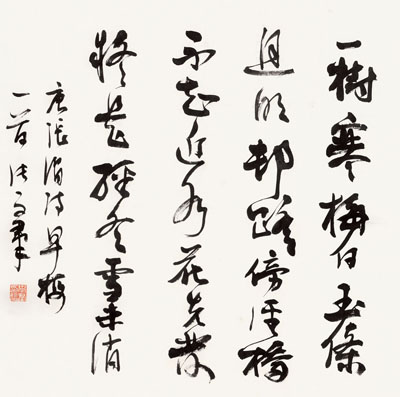 一樹寒梅白玉條
迥臨邨路傍溪橋
不知近水花先發
疑是經冬雪未消
唐張謂詩早梅
一首